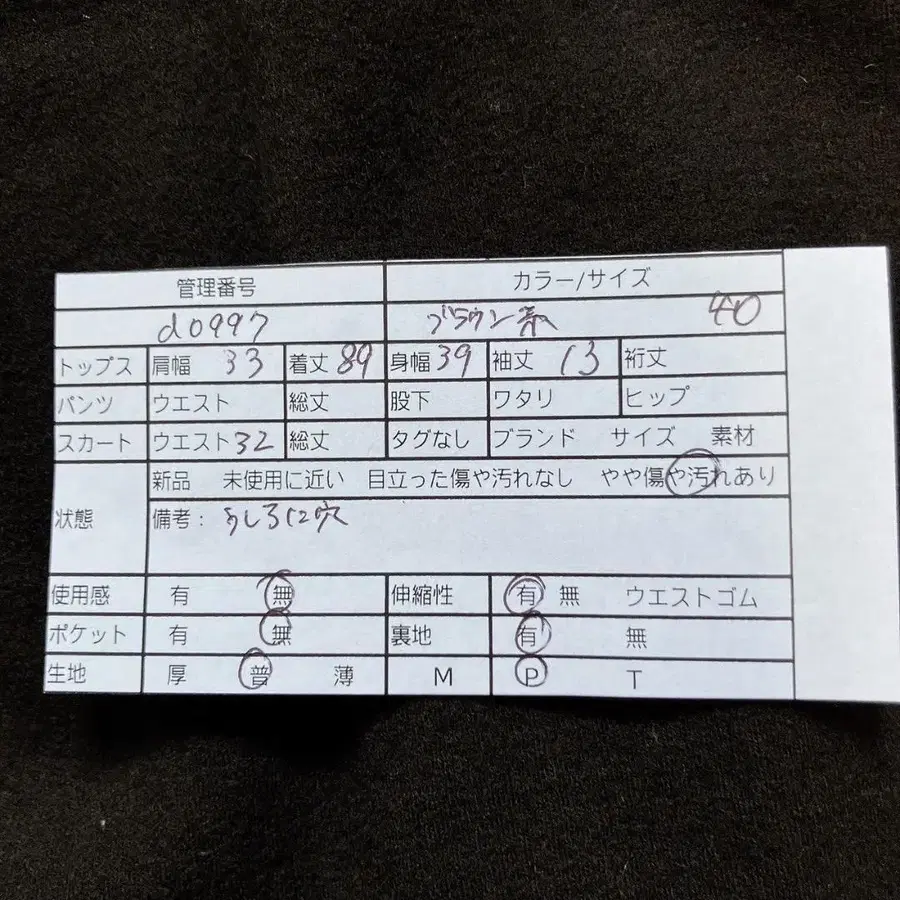 管理番号 カラー/サイズ
d0997 ブラウン系 40
トップス 肩幅 33 着丈 89 身幅 39 袖丈 13 裄丈
パンツ ウエスト 総丈 股下 ワタリ ヒップ
スカート ウエスト 32 総丈 タグなし ブランド サイズ 素材
新品 未使用に近い 目立った傷や汚れなし やや傷や汚れあり
状態 備考: うしろに穴
使用感 有 無 伸縮性 有 無 ウエストゴム
ポケット 有 無 裏地 有 無
生地 厚 普 薄 M P T